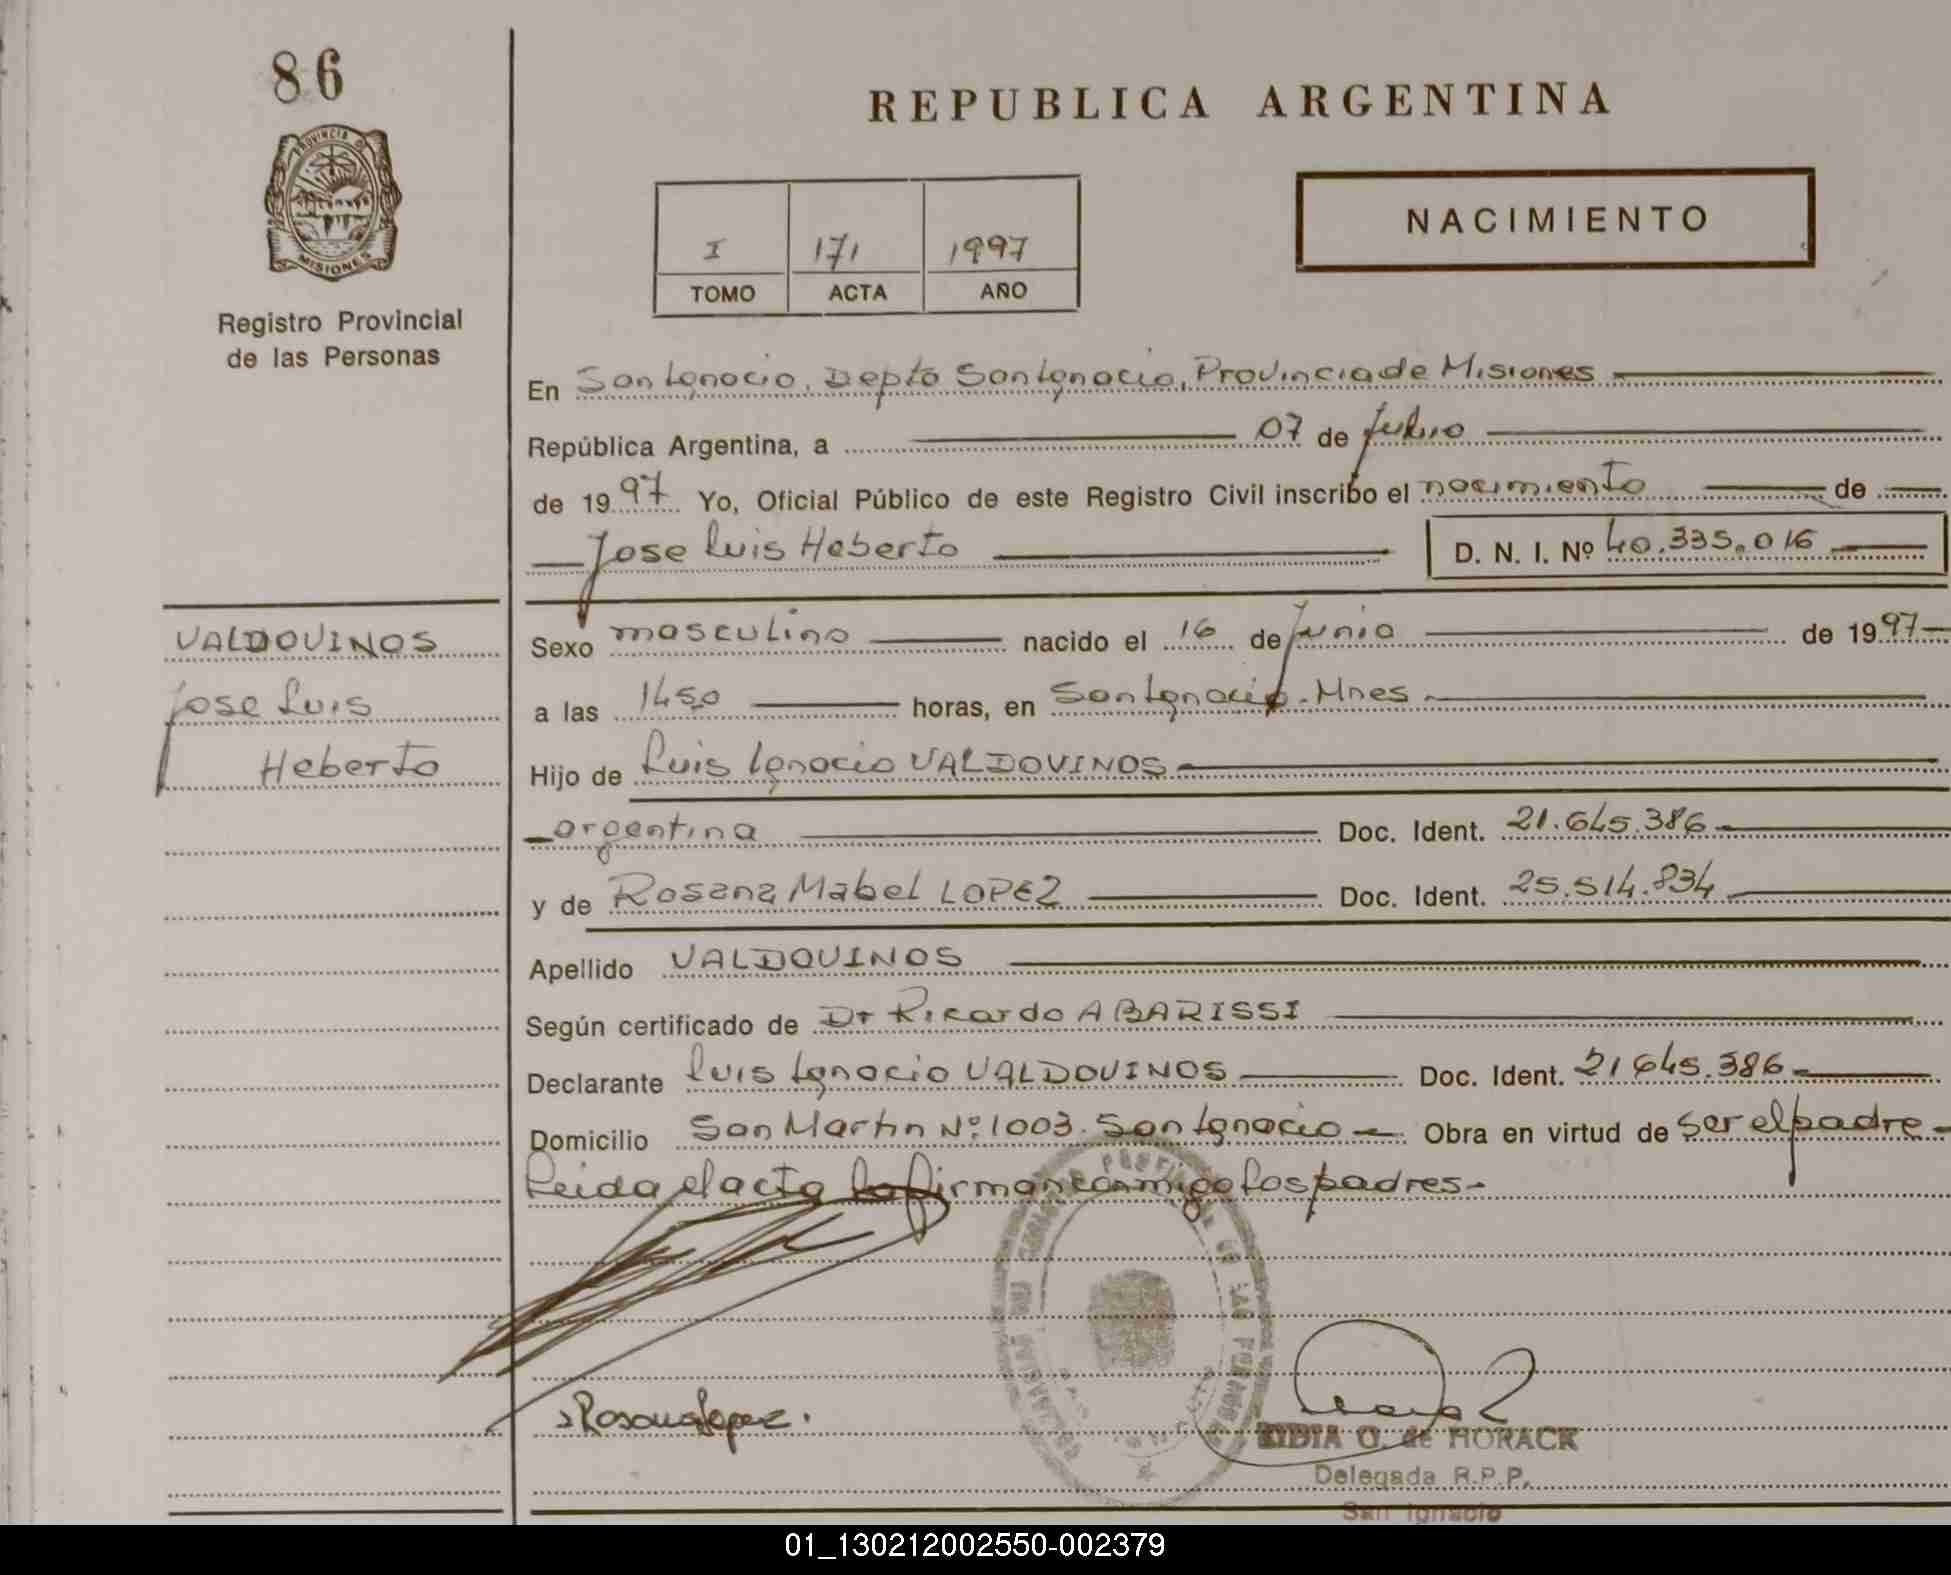 86
PROVINCIA DE
MISIONES
Registro Provincial
de las Personas
REPUBLICA ARGENTINA
I 171 1997
TOMO ACTA AÑO
NACIMIENTO
En San Ignacio, Depto San Ignacio, Provincia de Misiones
República Argentina, a 07 de Julio
de 1997 Yo, Oficial Público de este Registro Civil inscribo el nacimiento de
Jose Luis Heberto D. N. I. Nº 40.335.016
VALDOVINOS
Jose Luis
Heberto
Sexo masculino nacido el 16 de Junio de 1997
a las 1450 horas, en San Ignacio. Mnes
Hijo de Luis Ignacio VALDOVINOS
argentina Doc. Ident. 21.645.386
y de Rosana Mabel LOPEZ Doc. Ident. 25.514.834
Apellido VALDOVINOS
Según certificado de Dr Ricardo A BARISSI
Declarante Luis Ignacio VALDOVINOS Doc. Ident. 21.645.386
Domicilio San Martin Nº 1003. San Ignacio Obra en virtud de ser el padre
Leida el acta la firman conmigo los padres.
Rosana Lopez.
LIDIA O. de HORACK
Delegada R.P.P.
San Ignacio
01_130212002550-002379